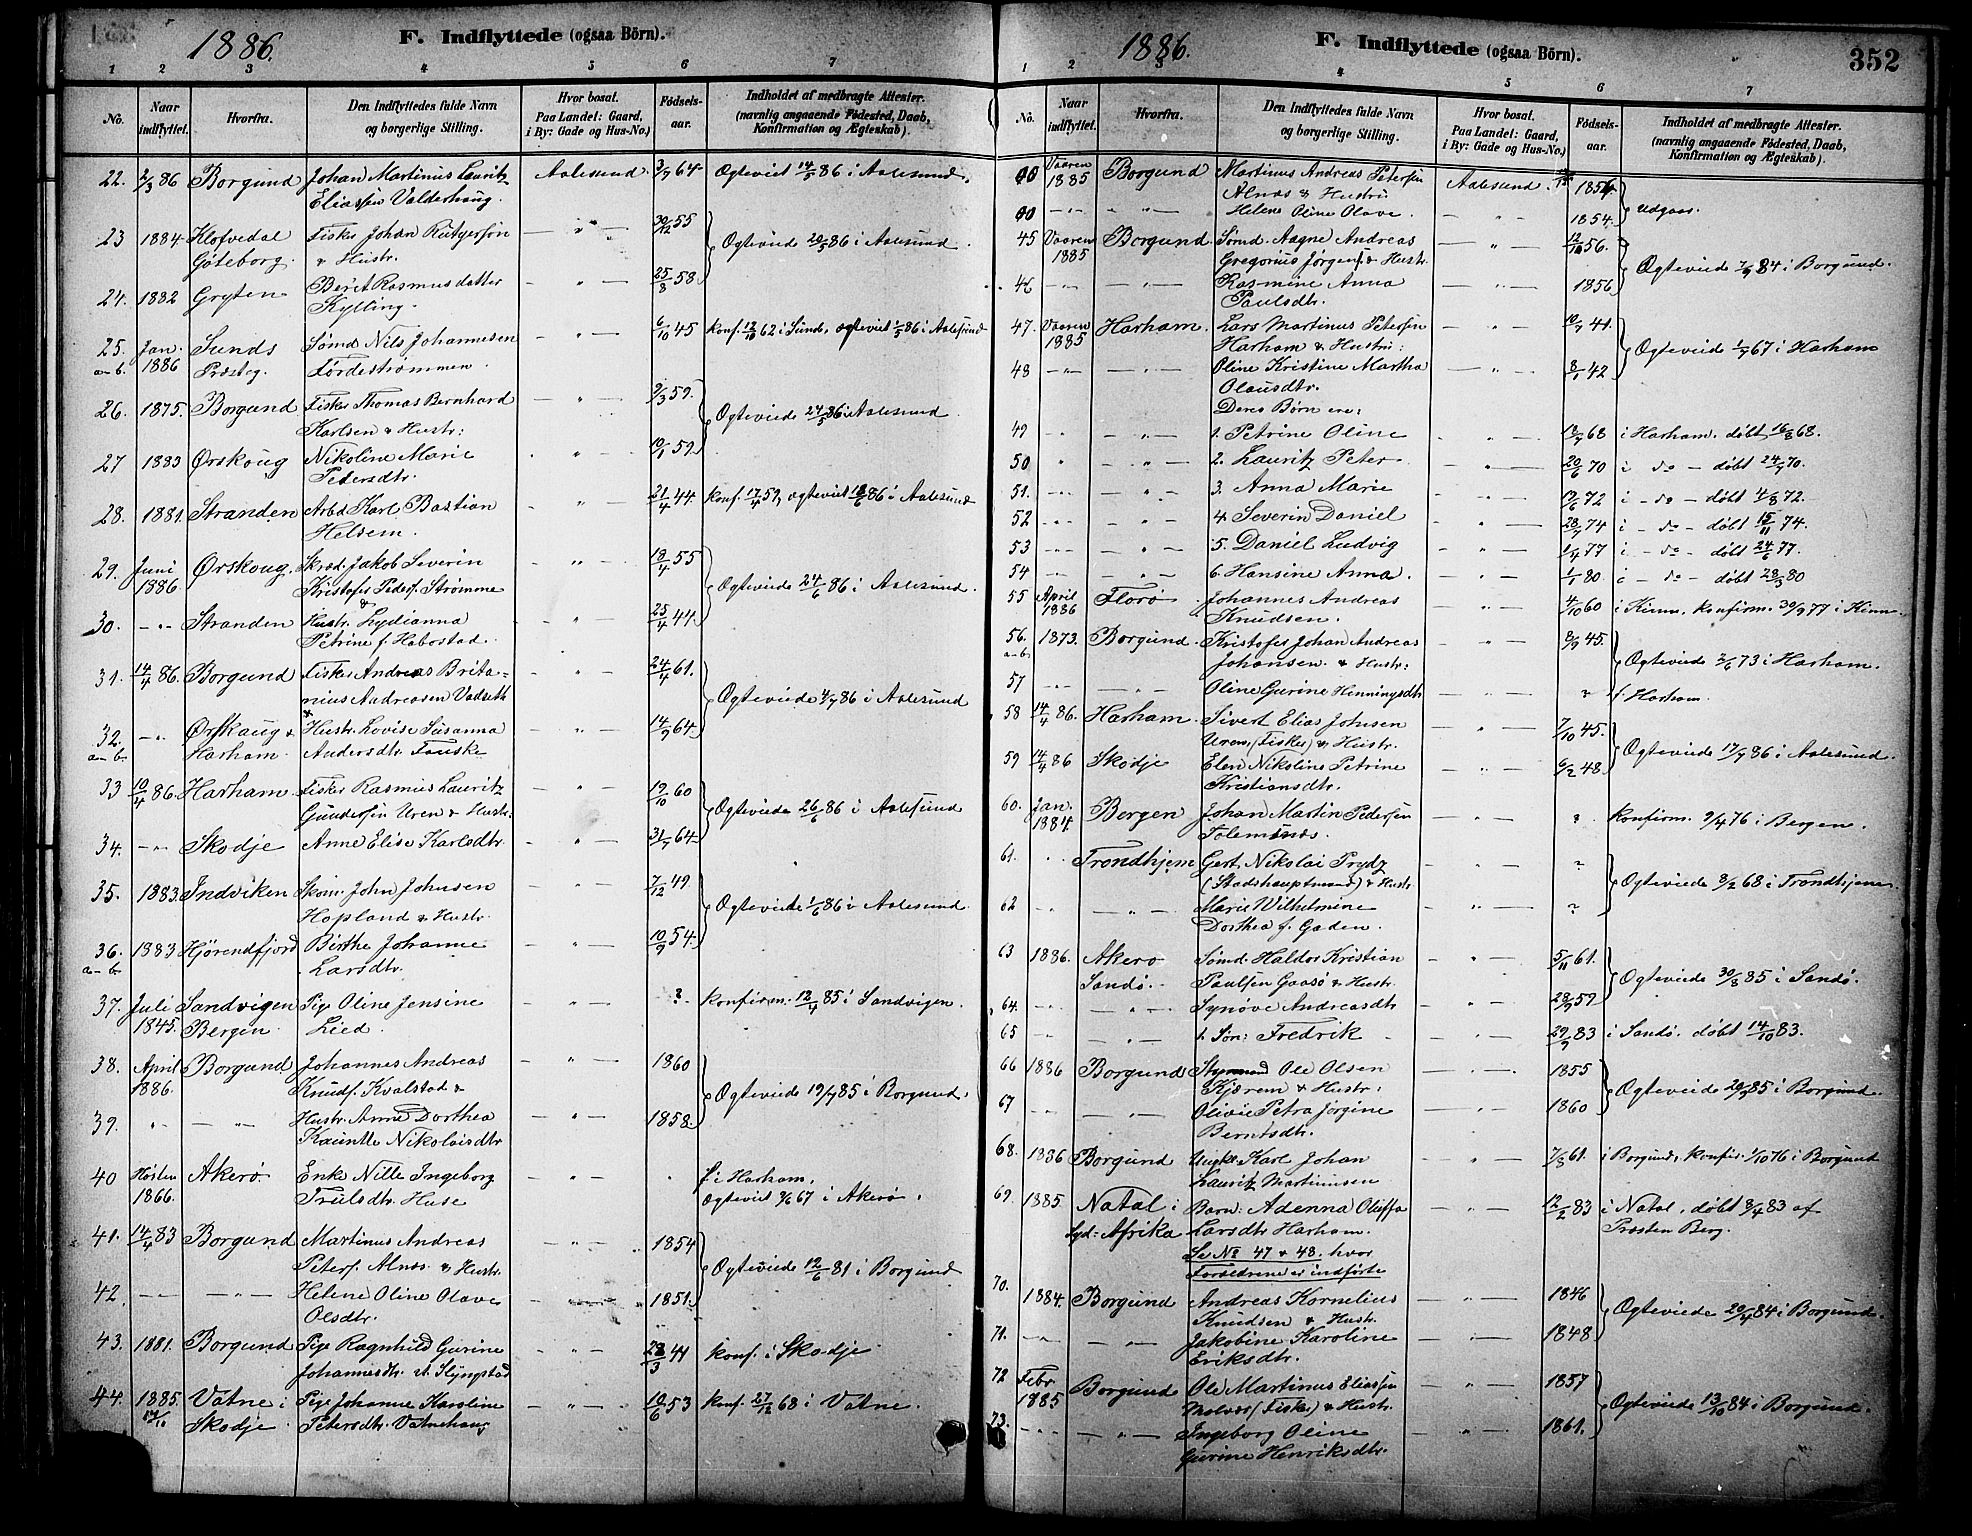 1886. F. Indflyttede (ogsaa Börn).
1 2 3 4 5 6 7
No. Naar indflyttet. Hvorfra. Den Indflyttedes fulde Navn og borgerlige Stilling. Hvor bosat. Paa Landet: Gaard, i By: Gade og Hus-No.) Fødsels-aar. Indholdet af medbragte Attester. (navnlig angaaende Fødested, Daab, Konfirmation og Ægteskab).
22. 2/3 86 Borgund Johan Martinus Lauritz Aalesund 3/7 64 Ogteviet 14/5 86 i Aalesund.
Eliassen Valderhaug.
23 1884. Klofvedal Fisker Johan Rutgersson — " — 30/12 55 Ogteviede 20/5 86 i Aalesund.
Göteborg. & Hustr.
24. 1882 Gryten Berit Rasmusdatter - " — 25/8 58
Kylling.
25. Jan. Sunds Sømd Nils Johannesen - " — 6/10 45 konf. 12/10 62 i Sund, ogteviet 1/5 86 i Aalesund
a-b. 1886 Præsteg. Førdestrømmen.
26. 1875. Borgund Fisker Thomas Bernhard - " — 2/3 59. Ogteviede 24/5 86 i Aalesund.
Karlsen & Hustr:
27 1883 Ørskoug Nikoline Marie . " . 10/1 59.
Petersdtr.
28. 1881. Stranden Arbd Karl Bastian " — 21/4 44 konf. 17/4 59, ogteviet 18/6 86 i Aalesund
Helsem.
29. Juni Ørskoug. Skræd. Jakob Severin - " — 18/4 55 Ogteviede 24/6 86 i Aalesund.
1886. Kristofer Peders. Strømme
&
30. -"- Stranden Hustr. Lydianna - " — 25/4 44.
Petrine f. Habostad.
31. 14/4 86. Borgund Fisker Andreas Brita- - " - 24/4 61. Ogteviede 4/7 86 i Aalesund
nius Andreasen Vadseth
&
32. -"- Ørskaug & Hustr. Lovise Susanna - " - 14/9 64
a-b Harham. Andersdtr. Fauske
33 10/4 86. Harham. Fisker Rasmus Lauritz - " — 19/10 60 Ogteviede 26/6 86 i Aalesund
Gundersen Uren & Hustr:
34. -"- Skodje Anne Elise Karlsdtr. - " — 31/7 64
35. 1883. Indviken Skom. John Johnsen - " — 7/12 49 Ogteviede 1/6 86 i Aalesund.
Hopland & Hustr.
36. 1883 Hjørendfjord Birthe Johanne " — 10/9 54.
a-b Larsdtr.
37. Juli Sandvigen Pige Oline Jensine - " — ? konfirm. 12/4 85 i Sandvigen.
1845. Bergen. Lied.
38. April Borgund Johannes Andreas - " — 1860 Ogteviede 19/7 85 i Borgund.
1886. Knuds. Kvalstad &
39. " — " — Hustr. Anne Dorthea — " — 1858.
Nikolaisdtr
40 Høsten Akerø. Enke Nille Ingeborg - " — . f. i Harham.
1866. Trulsdtr. Huse ogteviet 2/6 67 i Akerø.
41. 14/4 83 Borgund Martinus Andreas - " — 1854 Ogteviede 12/6 81 i Borgund
Peters. Alnæs & Hustr.
42. — — " — Helene Oline Olave — 1851.
Olsdtr.
43. 1881. Borgund Pige Ragnhild Gurine - " — 23/3 41 konf. i Skodje
Johannesdtr.
44. 1885. Vatne i Pige Johanne Karoline - " — 10/6 53 konf. 27/12 68 i Vatne.
Skodje Petersdtr. Vatnehaug
1886. F. Indflyttede (ogsaa Börn). 352
1 2 3 4 5 6 7
No. Naar indflyttet. Hvorfra. Den Indflyttedes fulde Navn og borgerlige Stilling. Hvor bosat. Paa Landet: Gaard, i By: Gade og Hus-No.) Fødsels-aar. Indholdet af medbragte Attester. (navnlig angaaende Fødested, Daab, Konfirmation og Ægteskab).
Vaaren Borgund Martinus Andreas Petersen Aalesund. 1854. Udgaar.
1885 Alnæs & Hustru
— " — Helene Oline Olave. - " — 1854.
45 Vaaren Borgund. Sømd. Aagne Andreas - " — 12/10 56. Ogteviede 7/9 84 i Borgund.
1885 Gregorius Jørgens. & Hustr.
46 -"- — " — Rasmine Anna - " — 1856
Paulsdtr.
47. Vaaren Harham. Lars Martinus Petersen - " — 10/7 41. Ogteviede 1/7 67 i Harham
1885 Harham & Hustru:
48 -"- — " — Oline Kristine Martha - " — 8/1 42
Olausdtr.
Deres Børn ere:
49 -"- — " — 1. Petrine Oline " — 18/7 68 i Harham. døbt 16/8 68.
50 " — " — 2. Lauritz Peter " — 20/6 70 i - do - døbt 24/7 70.
51. -"- - " - 3. Anna Marie - " — 19/6 72 i - do - døbt 4/8 72.
52 -"- - " - 4. Severin Daniel - " — 28/7 74 i - do - døbt 15/11 74.
53 -"- — " — 5. Daniel Ludvig - " — 2/4 77 i - do - døbt 24/6 77.
54 -"- — " — 6. Hansine Anna. - " — 1/1 80. i - do - døbt 28/3 80
55 April Florø Johannes Andreas - " — 4/10 60 i Kinn, konfirm. 30/9 77 i Kinn.
1886 Knudsen.
56. 1873. Borgund. Kristofer Johan Andreas - " — 8/9 45. Ogteviede 2/6 73 i Harham.
a-b Johansen. & Hustr:
57 -"- — " — Oline Gurine Henningsdtr ? f. Harham.
58 14/4 86. Harham. Sivert Elias Johnsen - " — 7/10 45. Ogteviede 17/7 86 i Aalesund.
Uren, (Fisker) & Hustr.
59 14/4 86 Skodje Elen Nikoline Petrine - " — 6/2 48
Kristiansdtr.
60. jan. Bergen Johan Martin Pedersen - " — ? konfirm. 2/4 76 i Bergen.
1884.
61. " Trondhjem Gert Nikolai Prydz — " — ? Ogteviede 8/2 68 i Trondhjem
(Stadshauptmand) & Hustr.
62 -- — " — Marie Wilhelmine — " — ?
Dorthea f. Gaden.
63 1886. Akerø Sømd. Haldor Kristian - " — 5/11 61. Ogteviede 30/8 85 i Sandø.
Sandø. Paulsen Gaasø & Hustr.
64. — — " — Synøve Andreasdtr - " — 28/9 59
65 -"- — " — 1. Søn: Fredrik - — 29/9 83 i Sandø. døbt 14/10 83.
66 1886 Borgund Styrmand Ole Olsen - " — 1855 Ogteviede 20/9 85 i Borgund.
Kjærem & Hustr:
67 -"- — " — Olivie Petra Jørgine — " — 1860
Berntsdtr.
68. 1886 Borgund Ungkl. Karl Johan — " — 7/8 61. i Borgund, konfir. 1/10 76 i Borgund
Lauritz Martinussen
69. 1885. Natal i Barn: Adenna Oluffa - " — 12/2 83 i Natal, døbt 8/4 83 af
Syd-Afrika Larsdtr Harham. Præsten Berg.
Se No 47 & 48. hvor
Forældrene er indførte
70. 1884. Borgund Andreas Kornelius - " — 1846 Ogteviede 20/4 84 i Borgund.
Knudsen & Hustr.
71. -"- — " — Jakobine Karoline - " — 1848
Eriksdtr.
72 Febr Borgund Ole Martinus Eliassen - " — 1857 Ogteviede 13/10 84 i Borgund.
1885 Molvær (Fisker) & Hustr.
73. -"- — " — Ingeborg Oline - " — 1861.
Gurine Henriksdtr.